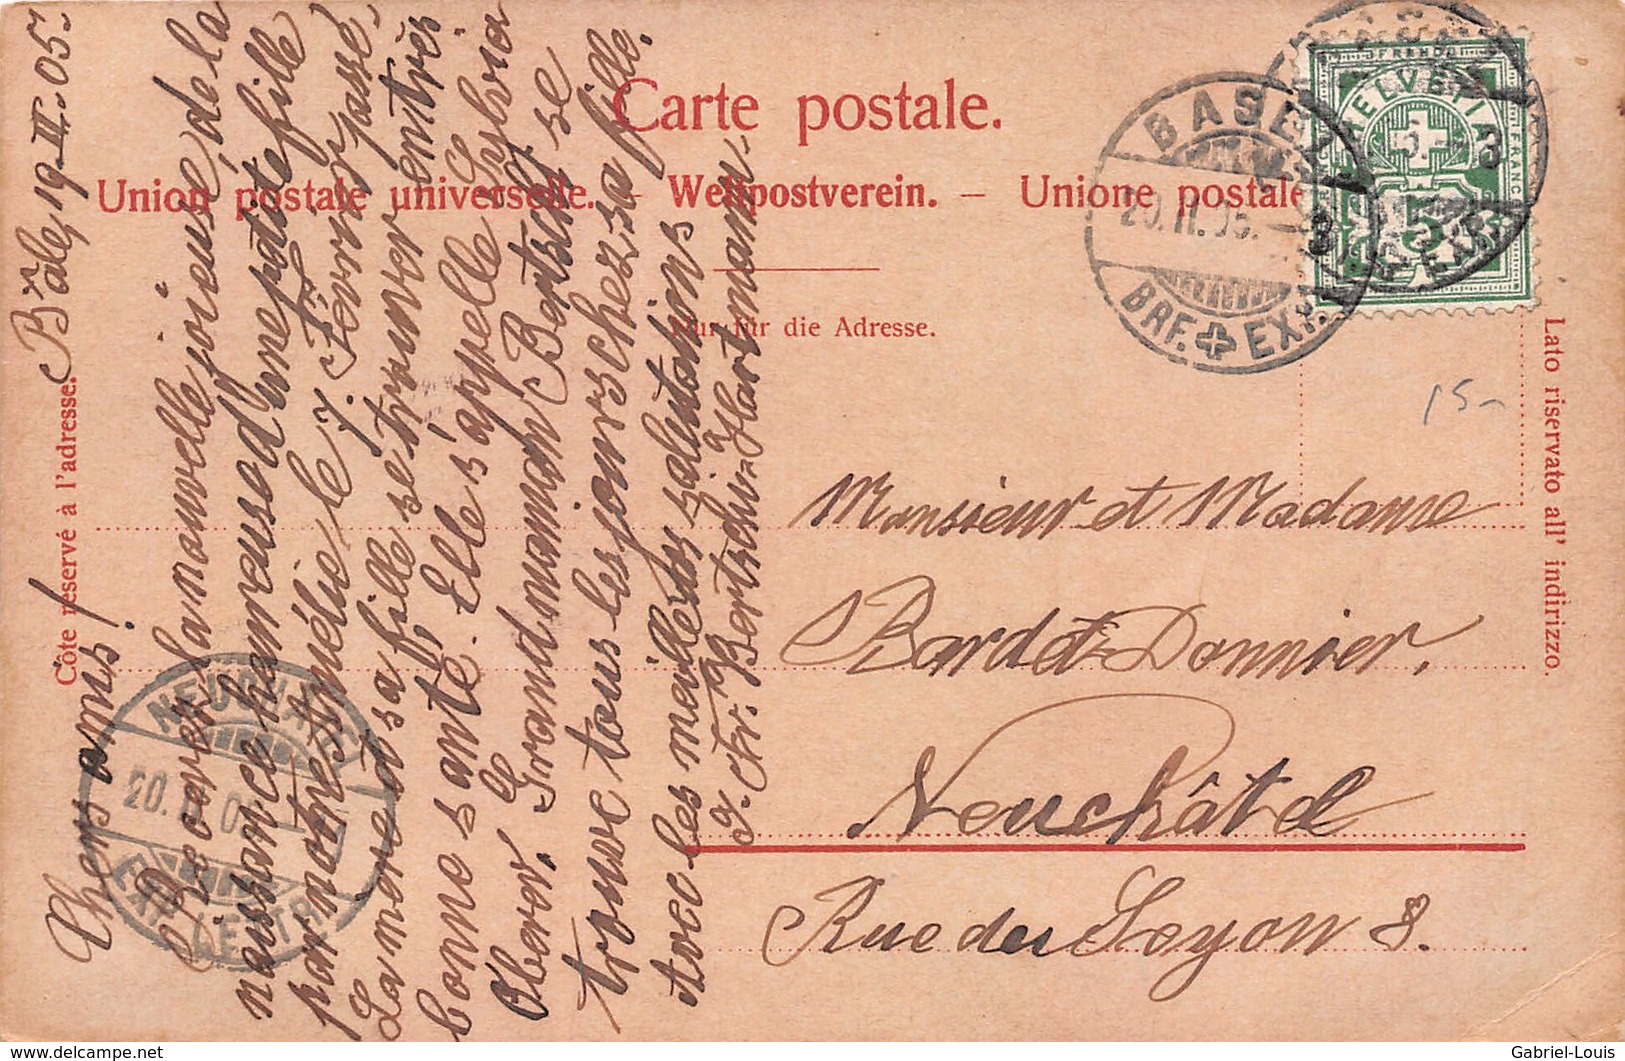 Carte postale.
Union postale universelle. – Weltpostverein. – Unione postale
Nur für die Adresse.
Côté réservé à l'adresse.
Lato riservato all' indirizzo.
BASEL
20.II.05.
3
BRF. EXP.
FRANCO
HELVETIA
5
NEUCHATEL
20.II.05
EXP. LETTR.
15-
Bâle, 19. II. 05.
Chers amis!
Recevez la nouvelle joieuse de la
naissance heureuse d'une petite fille
par notre Amélie le 7. Février passé.
La mère et sa fille se trouver en très
bonne santé. Elle s'appelle Sylvia
Oberer. Grand maman Bertschi se
trouve tous les jours chez sa fille.
Avec les meilleurs salutations
Fr. Bertschi-Hartmann.
Monsieur et Madame
Bardet-Donnier.
Neuchâtel
Rue du Seyon 8.
Gabriel-Louis
© www.delcampe.net